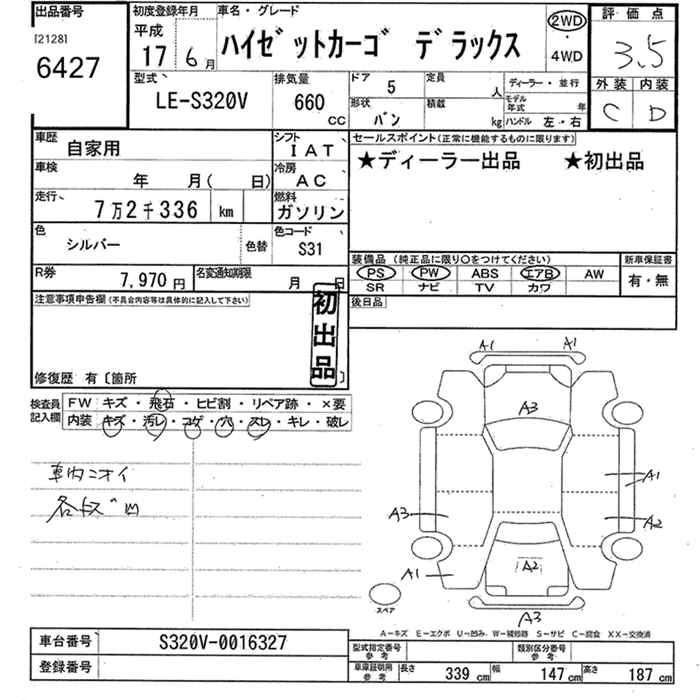 出品番号
[2128]
6427
初度登録年月
平成
17 6月
車名・グレード
ハイゼットカーゴ デラックス
2WD
・
4WD
評価点
3.5
外装 内装
C D
型式
LE-S320V
排気量
660
CC
ドア 5
定員 人
ディーラー・並行
形状
バン
積載 kg
モデル年式 年
ハンドル 左・右
車歴
自家用
シフト
IAT
車検
年 月( 日)
冷房
AC
走行
7万2千336 km
燃料
ガソリン
色
シルバー
色替
色コード
S31
R券
7,970円
名変通知期限
月 日
セールスポイント(正常に機能するものに限ります)
★ディーラー出品 ★初出品
装備品 (純正品に限り○をつけてください)
新車保証書
PS PW ABS エアB AW
SR ナビ TV カワ
有・無
後日品
注意事項申告欄(不具合内容等は具体的に記入して下さい)
初出品
修復歴 有〔箇所 〕
検査員記入欄
FW キズ・飛石・ヒビ割・リペア跡・×要
内装 キズ・汚レ・コゲ・穴・スレ・キレ・破レ
車内ニオイ
各キズ凹
A1 A1
A3
A1
A3
A2
A1
A2
A3
スペア
A−キズ E−エクボ U−凹み W−補修跡 S−サビ C−腐食 XX−交換済
車台番号
S320V-0016327
登録番号
型式指定番号
参考
類別区分番号
参考
車庫証明用
参考
長さ 339cm 幅 147cm 高さ 187cm